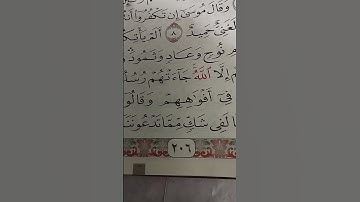 وَقَالَ مُوسَىٰ إِن تَكْفُرُوا
لَغَنِيٌّ حَمِيدٌ ٨ أَلَمْ يَأْتِكُمْ
نُوحٍ وَعَادٍ وَثَمُودَ
إِلَّا ٱللَّهُ جَآءَتْهُمْ رُسُلُ
فِىٓ أَفْوَٰهِهِمْ وَقَالُوٓ
لَفِى شَكٍّ مِّمَّا تَدْعُونَنَا
٢٠٦